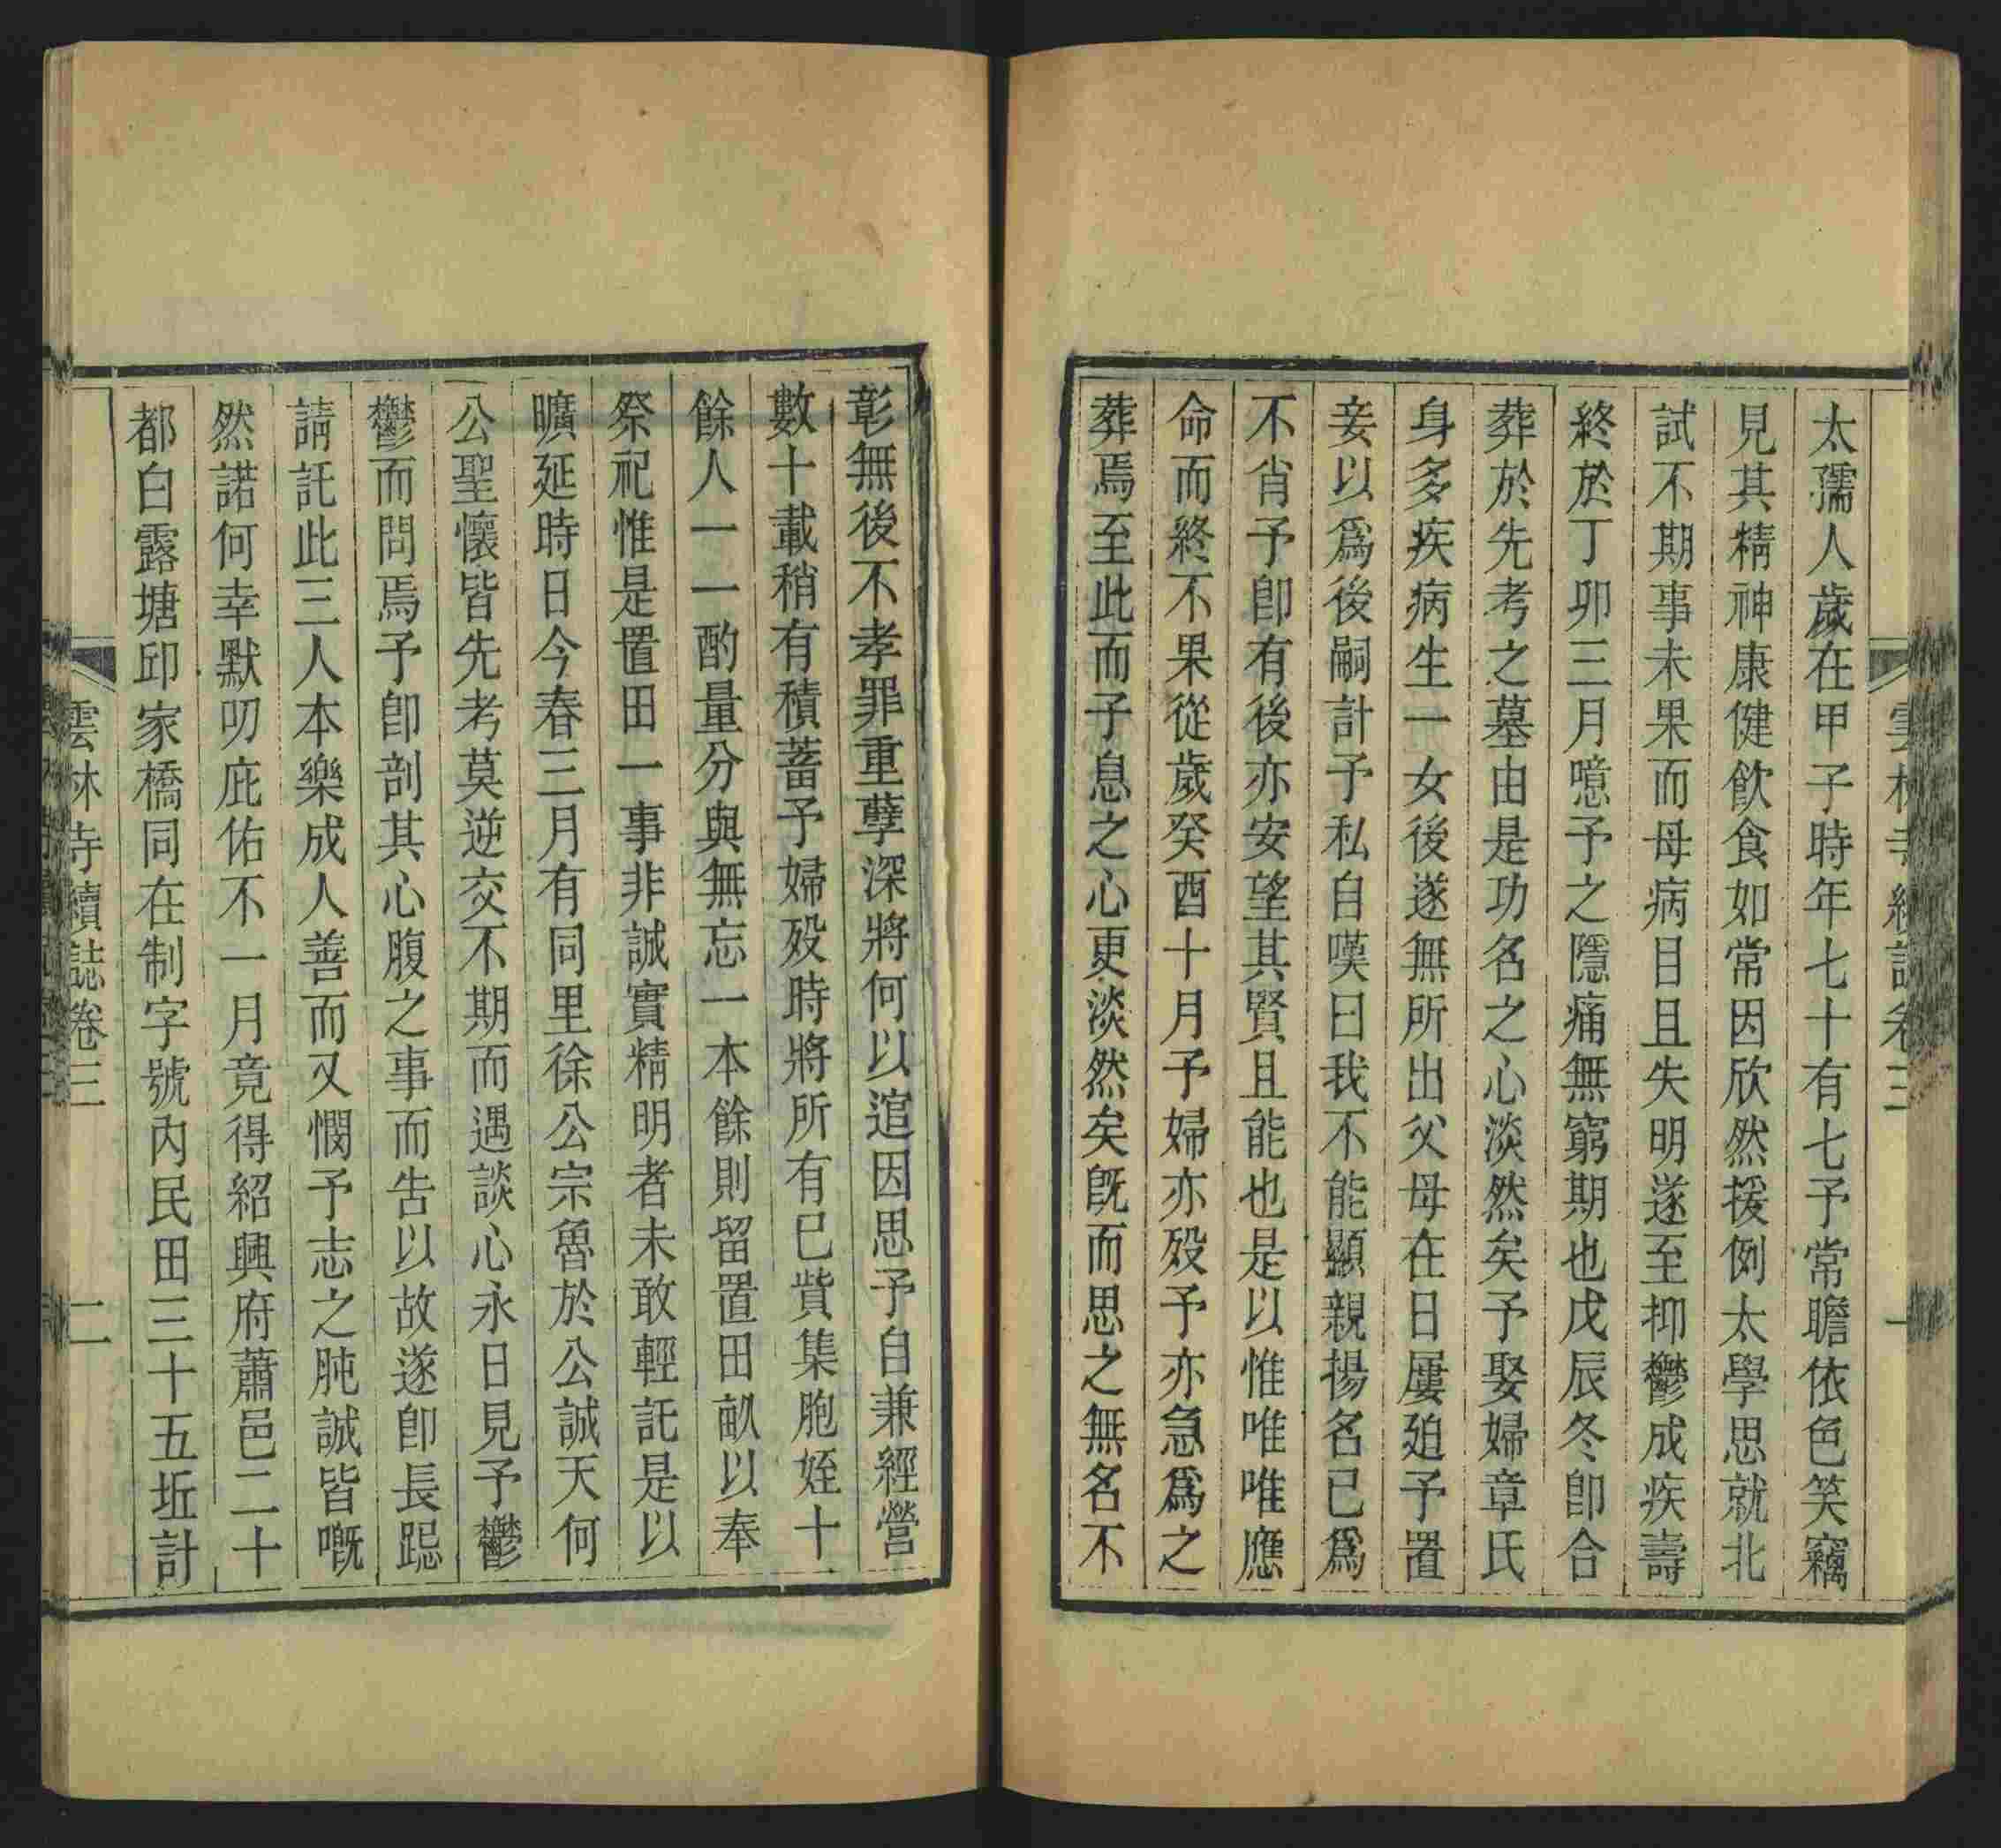 雲林寺續誌卷三 一
太孺人歲在甲子時年七十有七予常瞻依色笑竊
見其精神康健飲食如常因欣然援例太學思就北
試不期事未果而母病目且失明遂至抑鬱成疾壽
終於丁卯三月噫予之隱痛無窮期也戊辰冬卽合
葬於先考之墓由是功名之心淡然矣予娶婦章氏
身多疾病生一女後遂無所出父母在日屢廹予置
妾以爲後嗣計予私自嘆曰我不能顯親揚名已爲
不肖予卽有後亦安望其賢且能也是以惟唯唯應
命而終不果從歲癸酉十月予婦亦歿予亦急爲之
葬焉至此而子息之心更淡然矣旣而思之無名不
彰無後不孝罪重孽深將何以逭因思予自兼經營
數十載稍有積蓄予婦歿時將所有已貲集胞姪十
餘人一一酌量分與無忘一本餘則留置田畝以奉
祭祀惟是置田一事非誠實精明者未敢輕託是以
曠延時日今春三月有同里徐公宗魯於公誠天何
公聖懷皆先考莫逆交不期而遇談心永日見予鬱
鬱而問焉予卽剖其心腹之事而告以故遂卽長跽
請託此三人本樂成人善而又憫予志之肫誠皆嘅
然諾何幸默叨庇佑不一月竟得紹興府蕭邑二十
都白露塘邱家橋同在制字號內民田三十五坵計
雲林寺續誌卷三 二